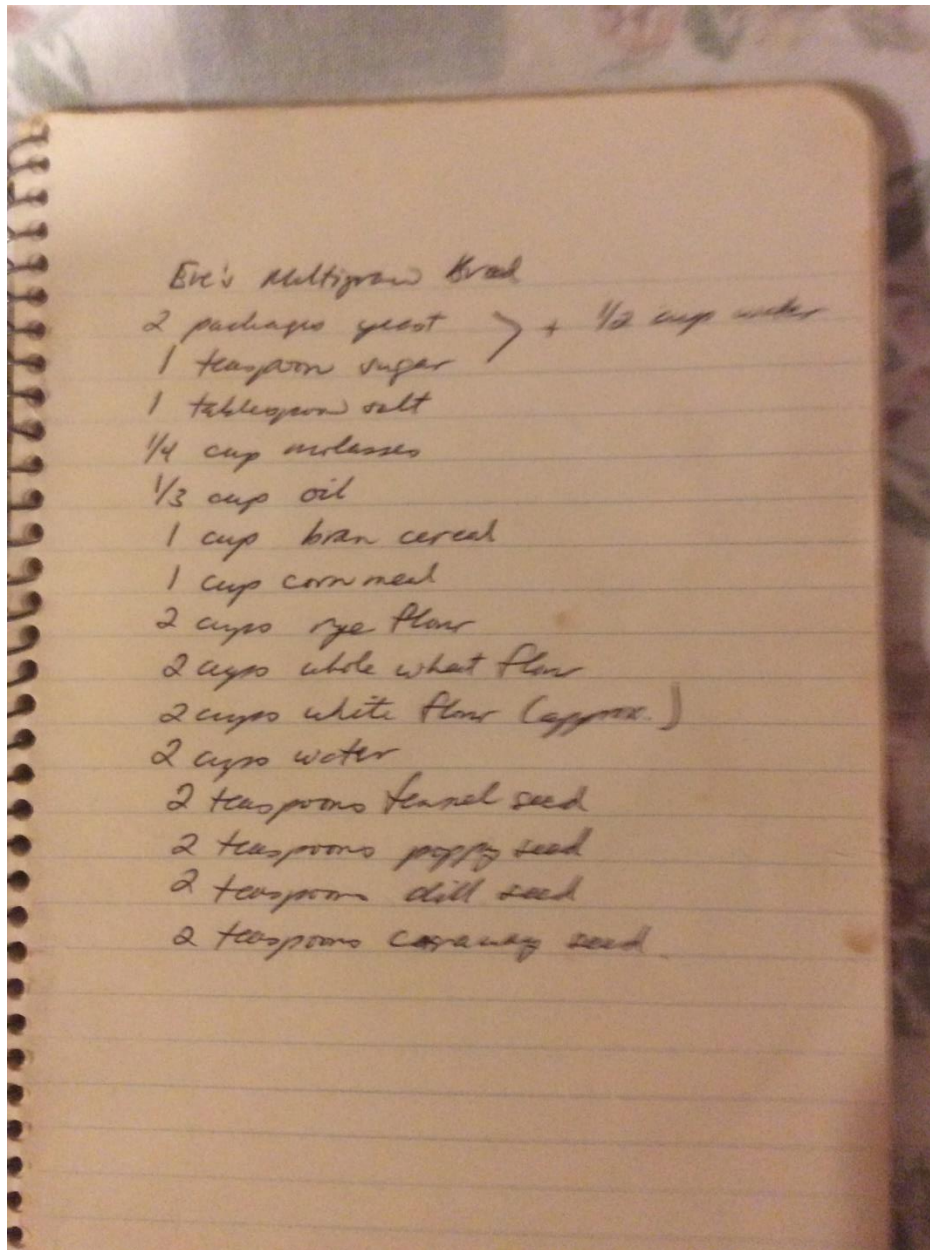 Eve's Multigrain Bread
2 packages yeast } + 1/2 cup water
1 teaspoon sugar
1 tablespoon salt
1/4 cup molasses
1/3 cup oil
1 cup bran cereal
1 cup corn meal
2 cups rye flour
2 cups whole wheat flour
2 cups white flour (approx.)
2 cups water
2 teaspoons fennel seed
2 teaspoons poppy seed
2 teaspoons dill seed
2 teaspoons caraway seed